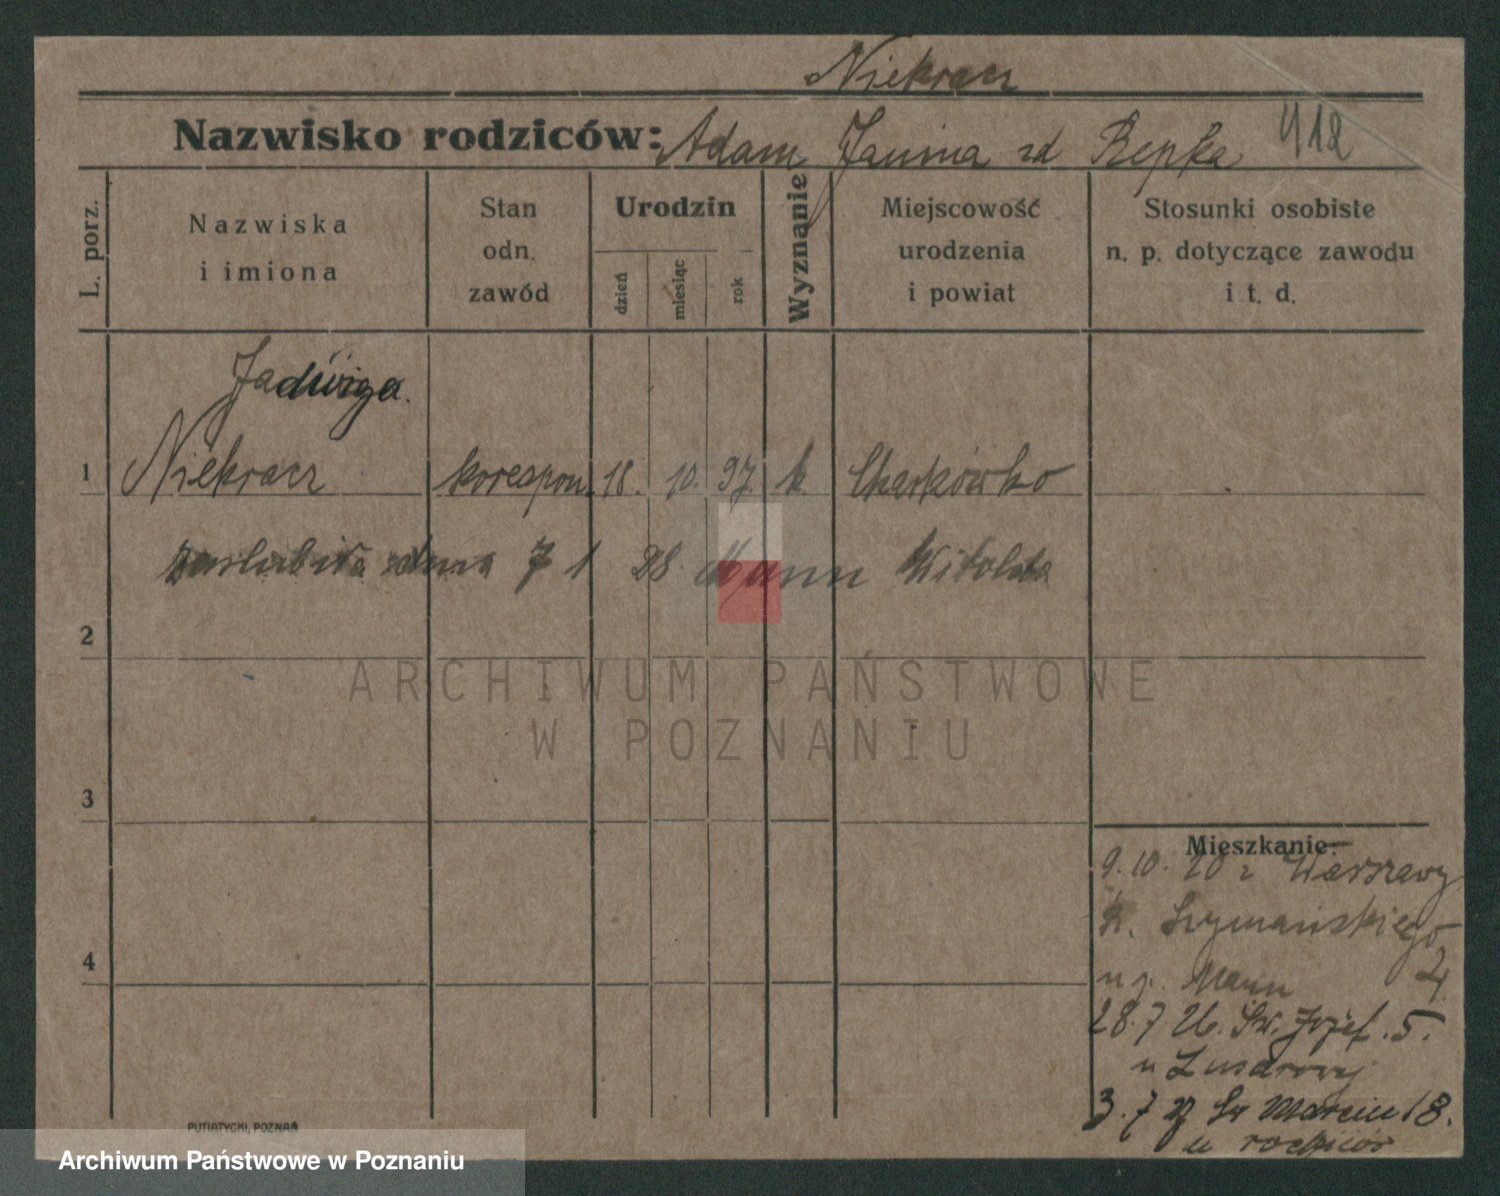 Niekracz
Nazwisko rodziców: Adam Janina zd Repka 412
L. porz.
Nazwiska
i imiona
Stan
odn.
zawód
Urodzin
dzień
miesiąc
rok
Wyznanie
Miejscowość
urodzenia
i powiat
Stosunki osobiste
n. p. dotyczące zawodu
i t. d.
Jadwiga.
1 Niekracz korespon. 18. 10. 97. k. Charkówko
zaślubiła dnia 7 1 28. Mann Witolda
2
ARCHIWUM PAŃSTWOWE
W POZNANIU
3
4
Mieszkanie:
9. 10. 20 z Warszawy
k. Szymańskiego
u p. Mann 4
28. 7 26. Św. Józef. 5.
u
3. 7 27 Św Marcin 18.
u rodziców
PUTIATYCKI, POZNAŃ
Archiwum Państwowe w Poznaniu